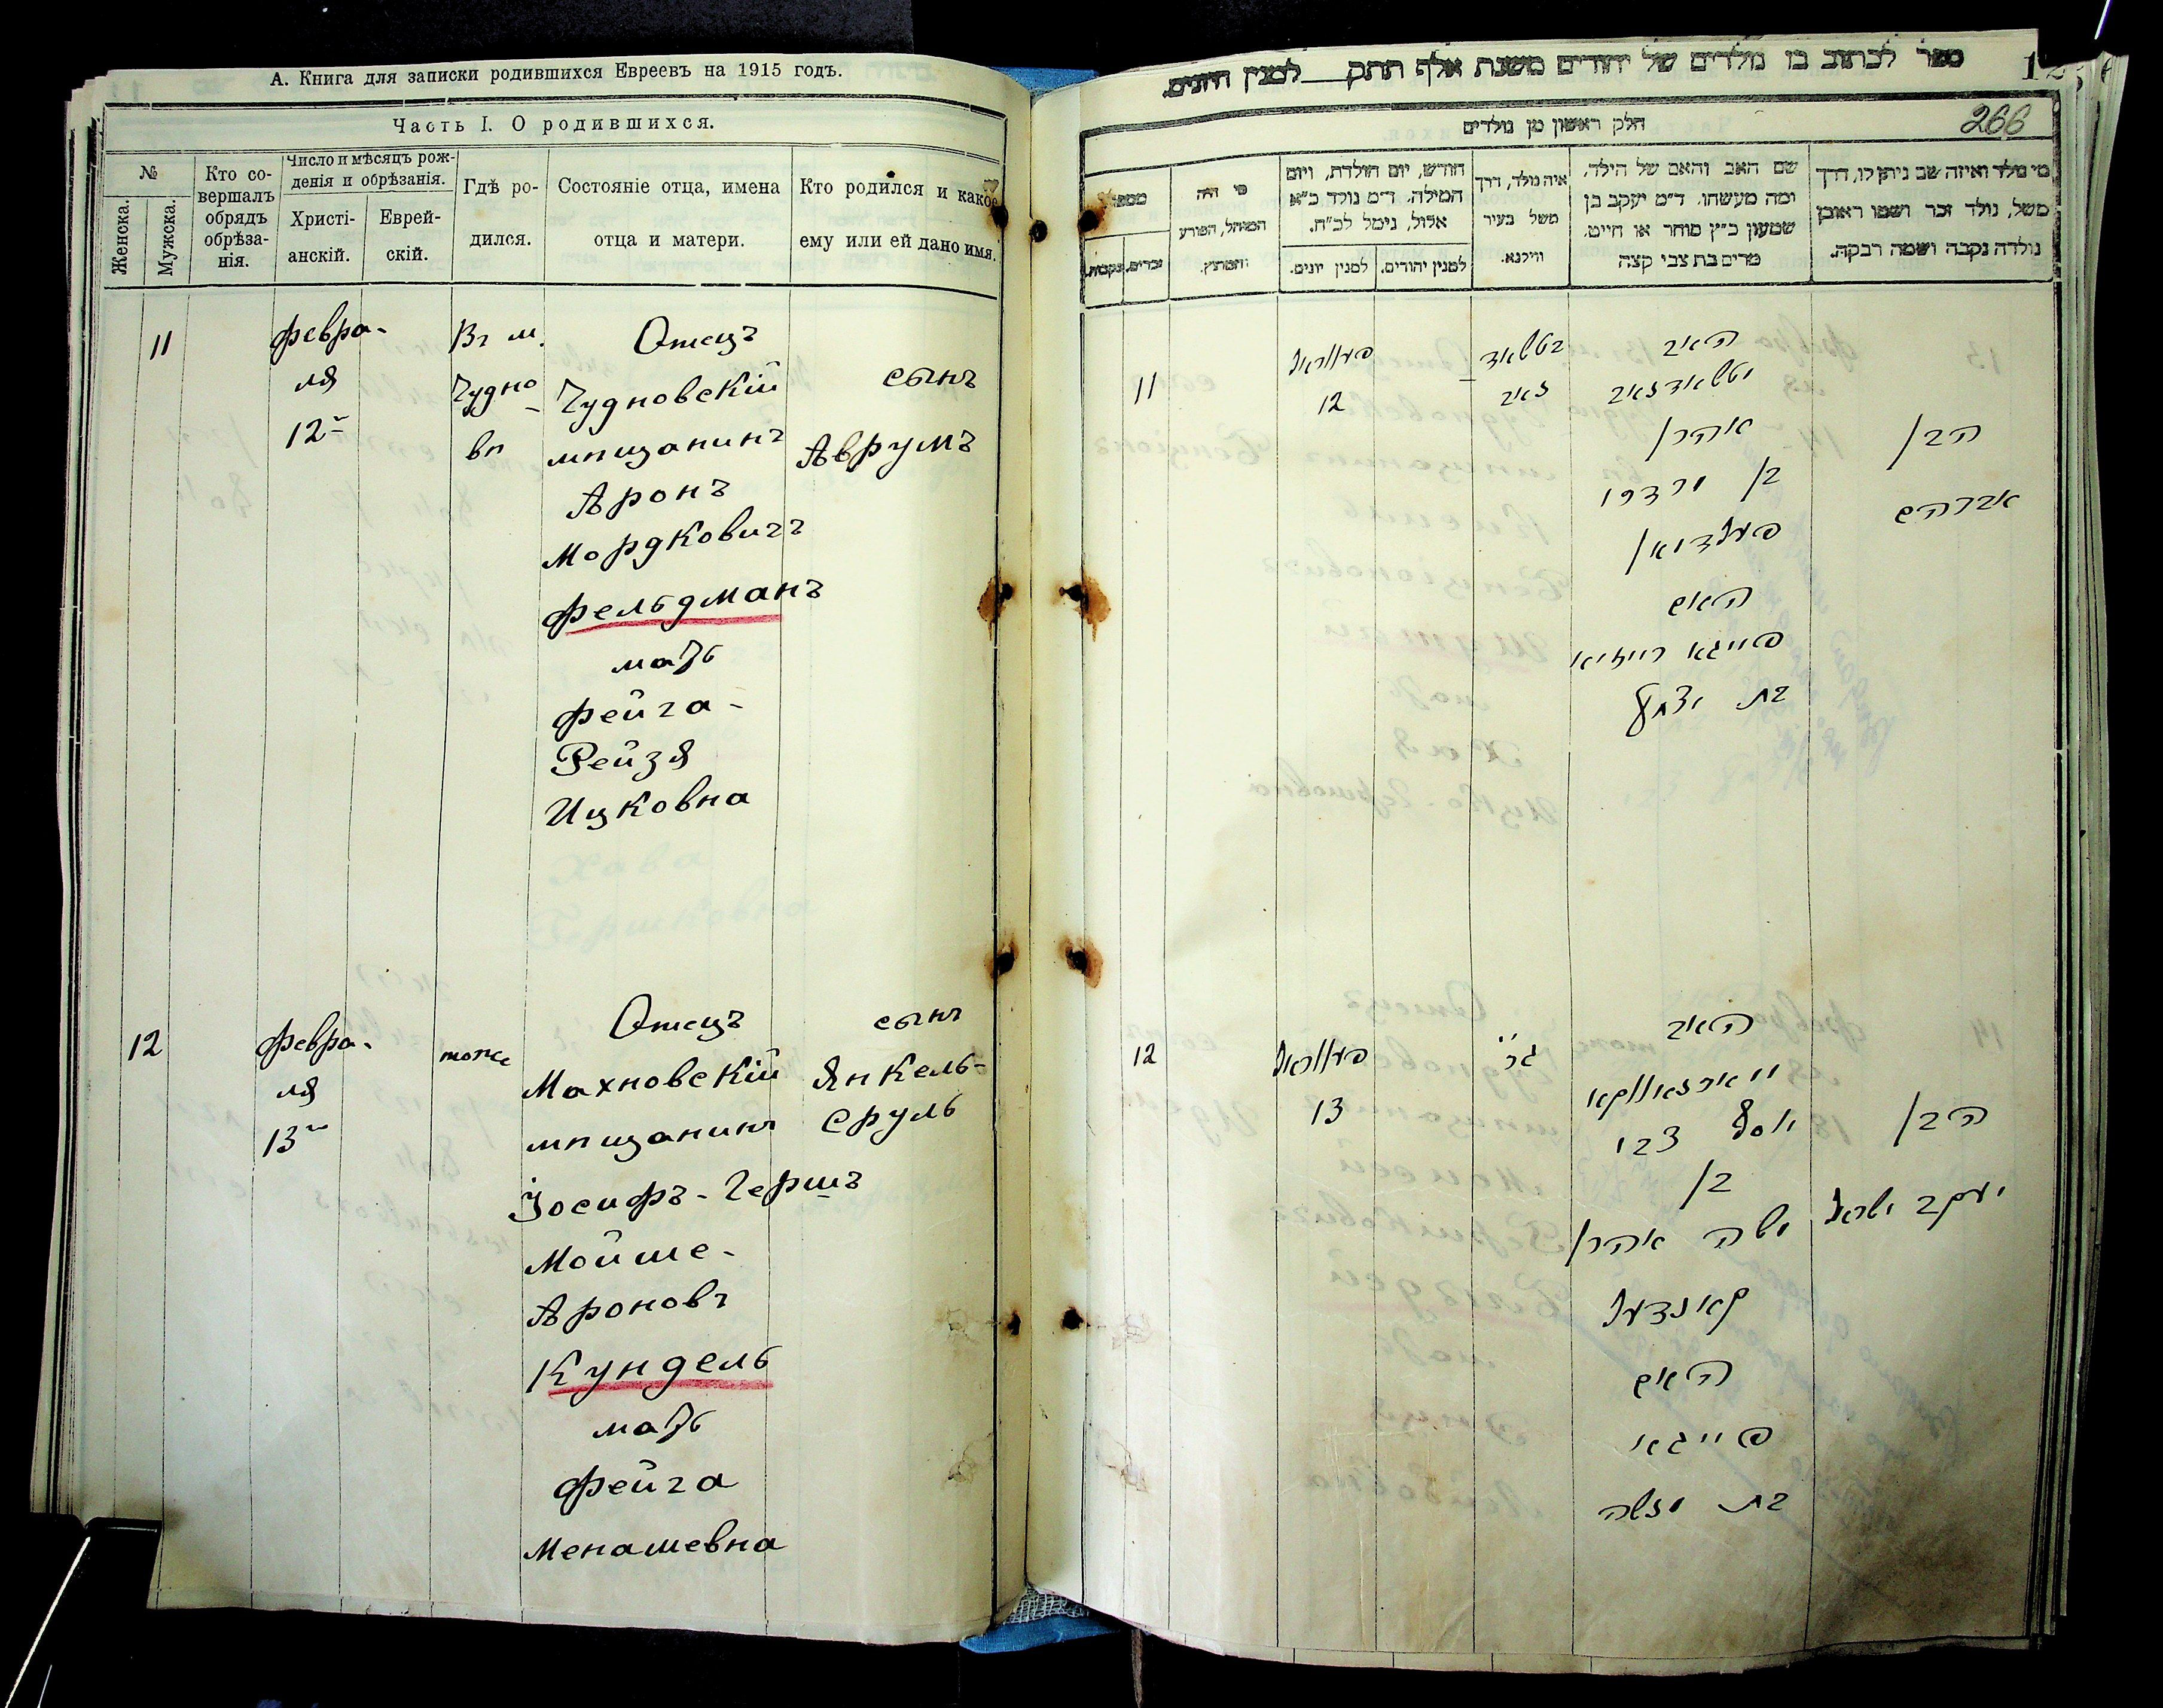 А. Книга для записки родившихся Евреевъ на 1915 годъ.
Часть I. О родившихся.
№
Женска.
Мужска.
Кто со-
вершалъ
обрядъ
обрѣза-
нія.
Число и мѣсяцъ рож-
денія и обрѣзанія.
Христі-
анскій.
Еврей-
скій.
Гдѣ ро-
дился.
Состояніе отца, имена
отца и матери.
Кто родился и какое
ему или ей дано имя.
11
февра-
ля
12
Въ м.
Чудно-
вѣ
Отецъ
Чудновскій
мѣщанинъ
Аронъ
Мордковичъ
Фельдманъ
мать
Фейга-
Рейзя
Ицковна
сынъ
Аврумъ
12
февра-
ля
13
тоже
Отецъ
Махновскій
мѣщанинъ
Іосифъ-Гершъ
Мойше-
Ароновъ
Кундель
мать
Фейга
Менашевна
сынъ
Янкель-
Сруль
ספר לכתוב בו נולדים של יהודים משנת אלף תתק למנין היונים.
266
חלק ראשון מן נולדים
מי נולד ואיזה שם ניתן לו, דרך
משל, נולד זכר ושמו ראובן
נולדה נקבה ושמה רבקה.
שם האב והאם של הילד,
ומה מעשהו. ד״מ יעקב בן
שמעון כ״ץ סוחר או חייט.
מרים בת צבי קצה
איה נולד, דרך
משל בעיר
ווילנא.
חודש, יום הולדת, ויום
המילה. ד״מ נולד כ״א
אלול, נימל לכ״ח.
למנין יהודים.
למנין יונים.
מי היה
המוהל, הפורע
והמוצץ.
זכרים.
נקבות.
11
פעווראל
12
האב
אהרן
בן מרדכי
פעלדמאן
האם
פייגא רייזיא
בת יצחק
הבן
אברהם
12
פעווראל
13
האב
יוסף צבי
בן
משה אהרן
קאנדעל
האם
פייגא
בת מנשה
הבן
יעקב ישראל